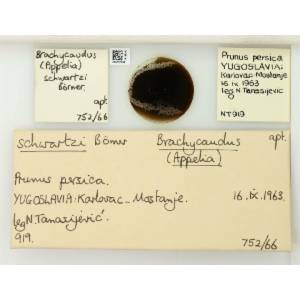 Brachycaudus
(Appelia)
schwartzi
Börner.
apt.
752/66
Prunus persica
YUGOSLAVIA:
Karlovac-Mostanje
16.ix.1963
leg. N. Tanasijevic
NT919
schwartzi Börner
Brachycaudus
(Appelia)
apt.
Prunus persica.
YUGOSLAVIA: Karlovac-Mostanje.
16.ix.1963.
leg N. Tanasijević.
919.
752/66